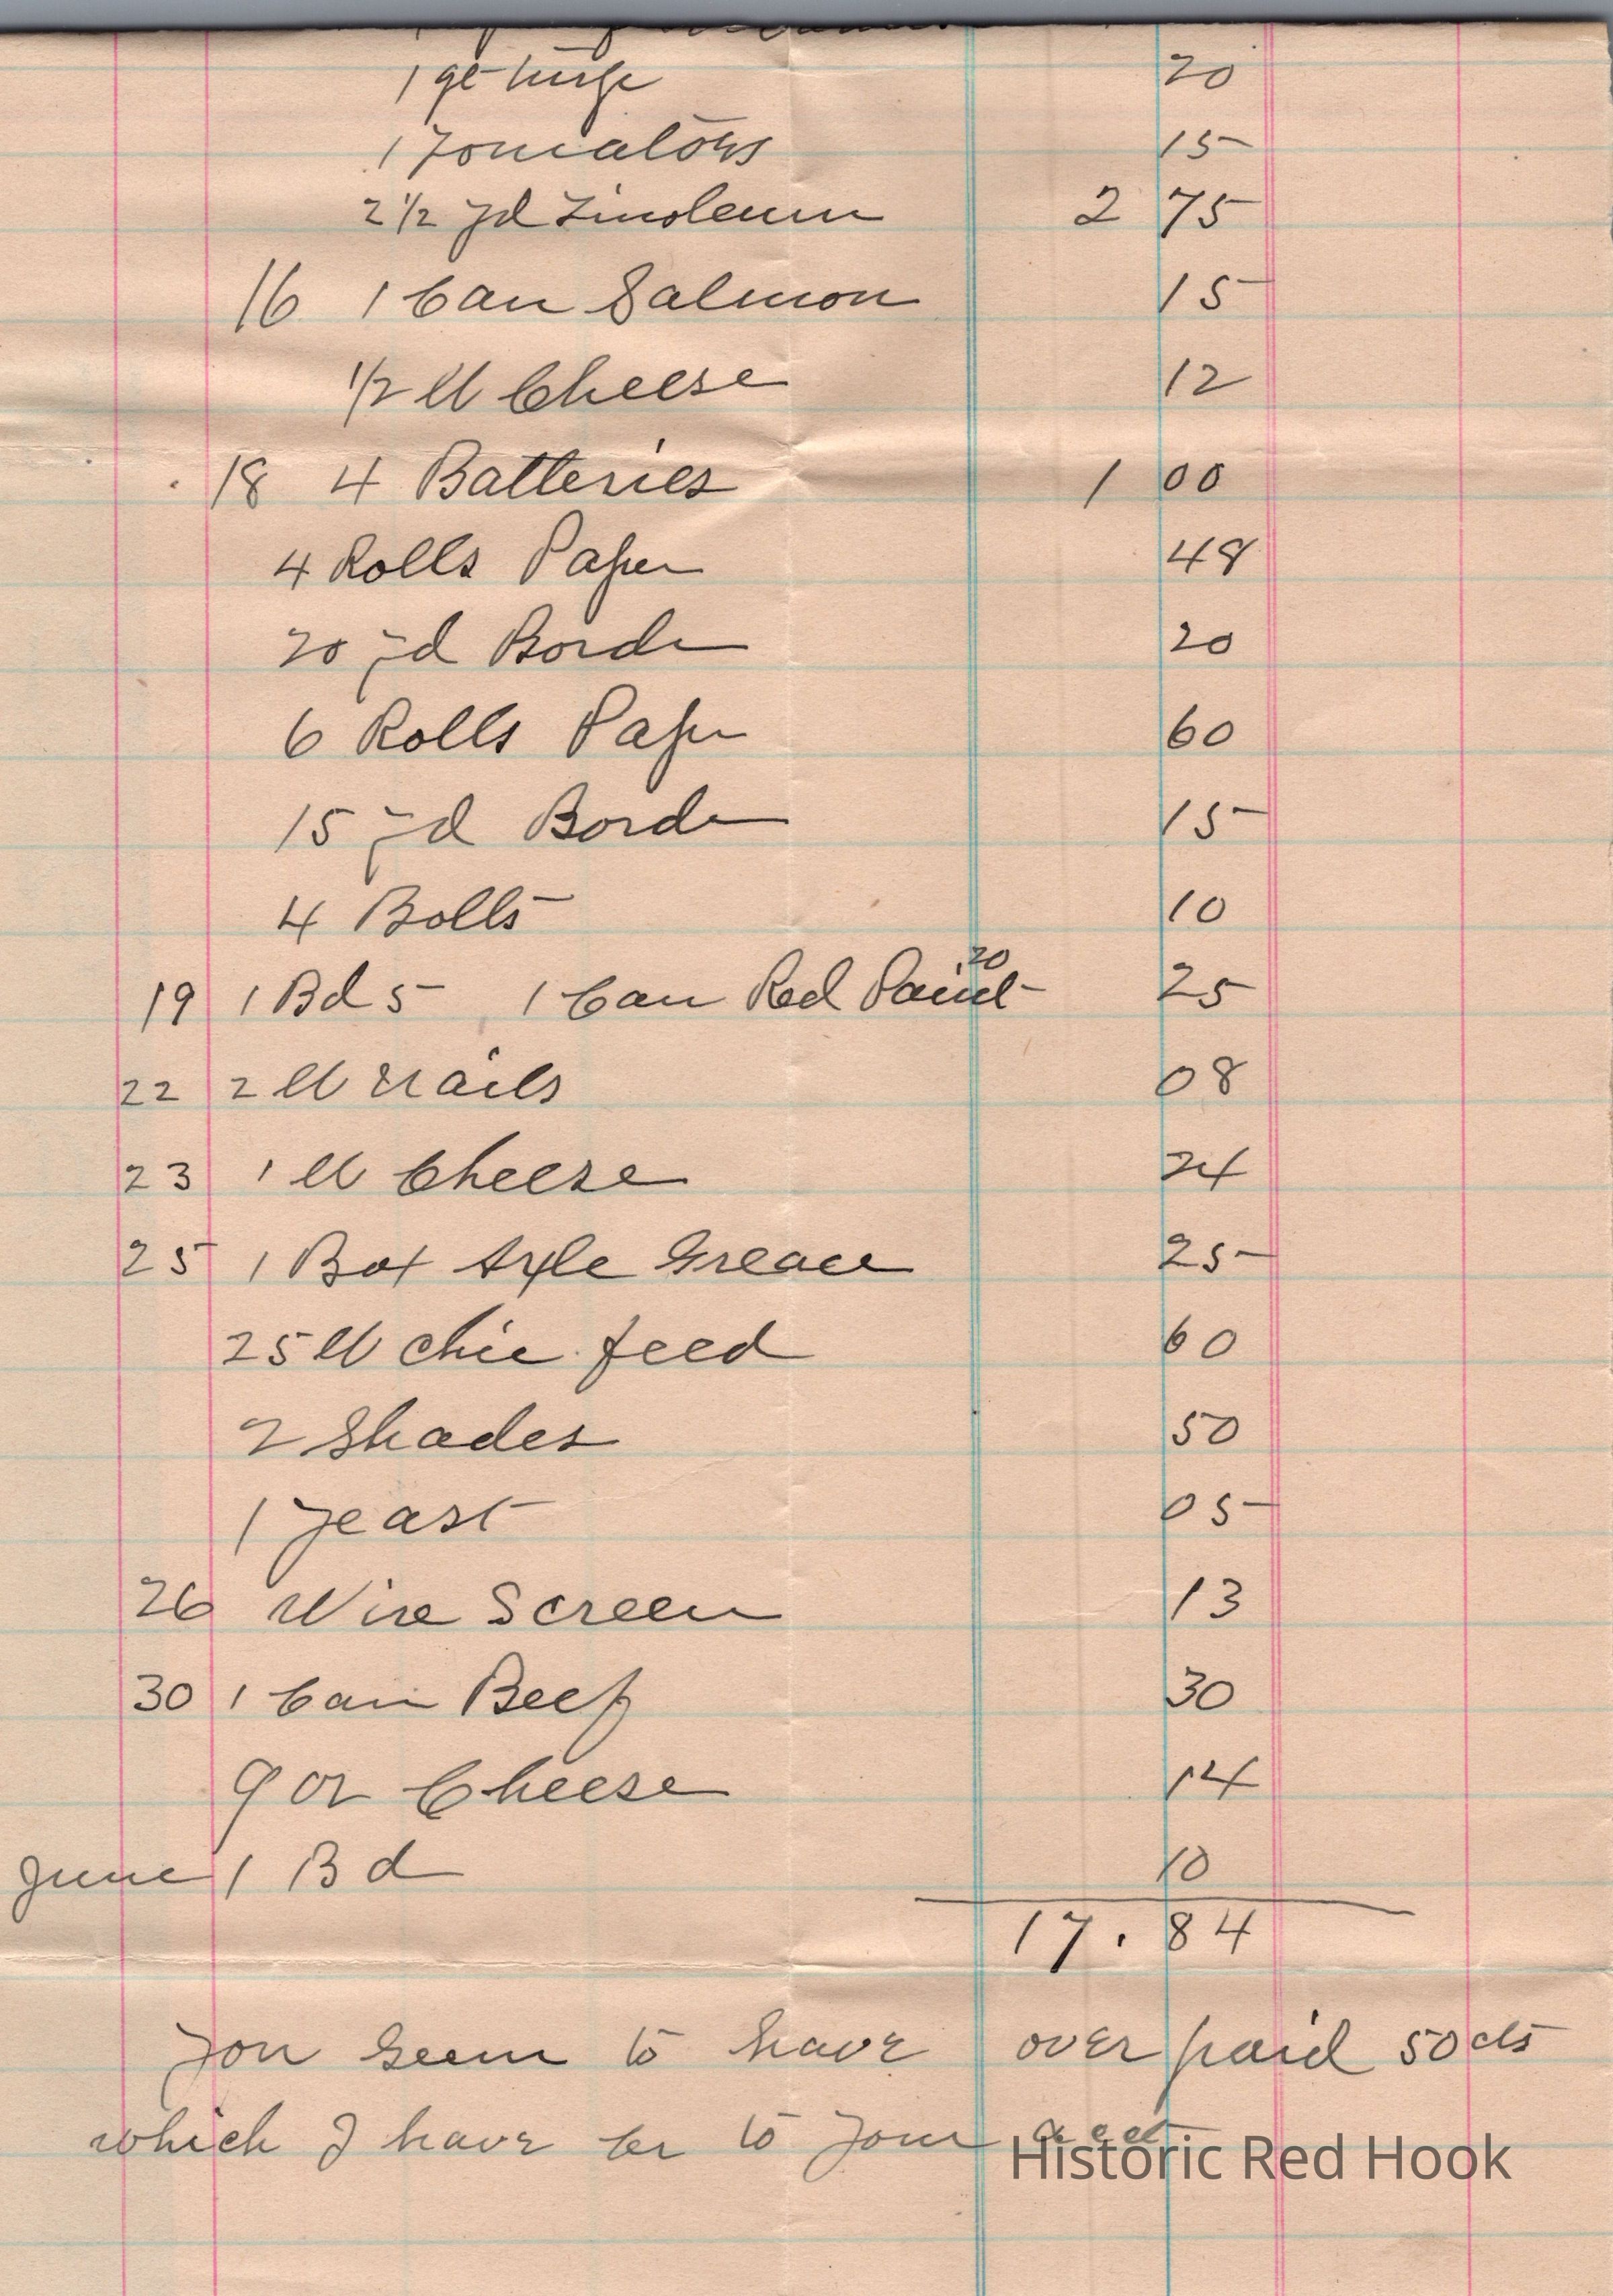 1 qt Turpe 20
1 Tomatoes 15
2 1/2 yd Linoleum 2 75
16 1 Can Salmon 15
1/2 lb Cheese 12
18 4 Batteries 1 00
4 Rolls Paper 48
20 yd Border 20
6 Rolls Paper 60
15 yd Border 15
4 Bolts 10
19 1 Bd 5 1 Can Red Paint 20 25
22 2 lb nails 08
23 1 lb Cheese 24
25 1 Box Axle Grease 25
25 lb Chic feed 60
2 Shades 50
1 yeast 05
26 Wire Screen 13
30 1 Can Beef 30
9 oz Cheese 14
June 1 Bd 10
17.84
You seem to have over paid 50 cts
which I have cr to your acct
Historic Red Hook